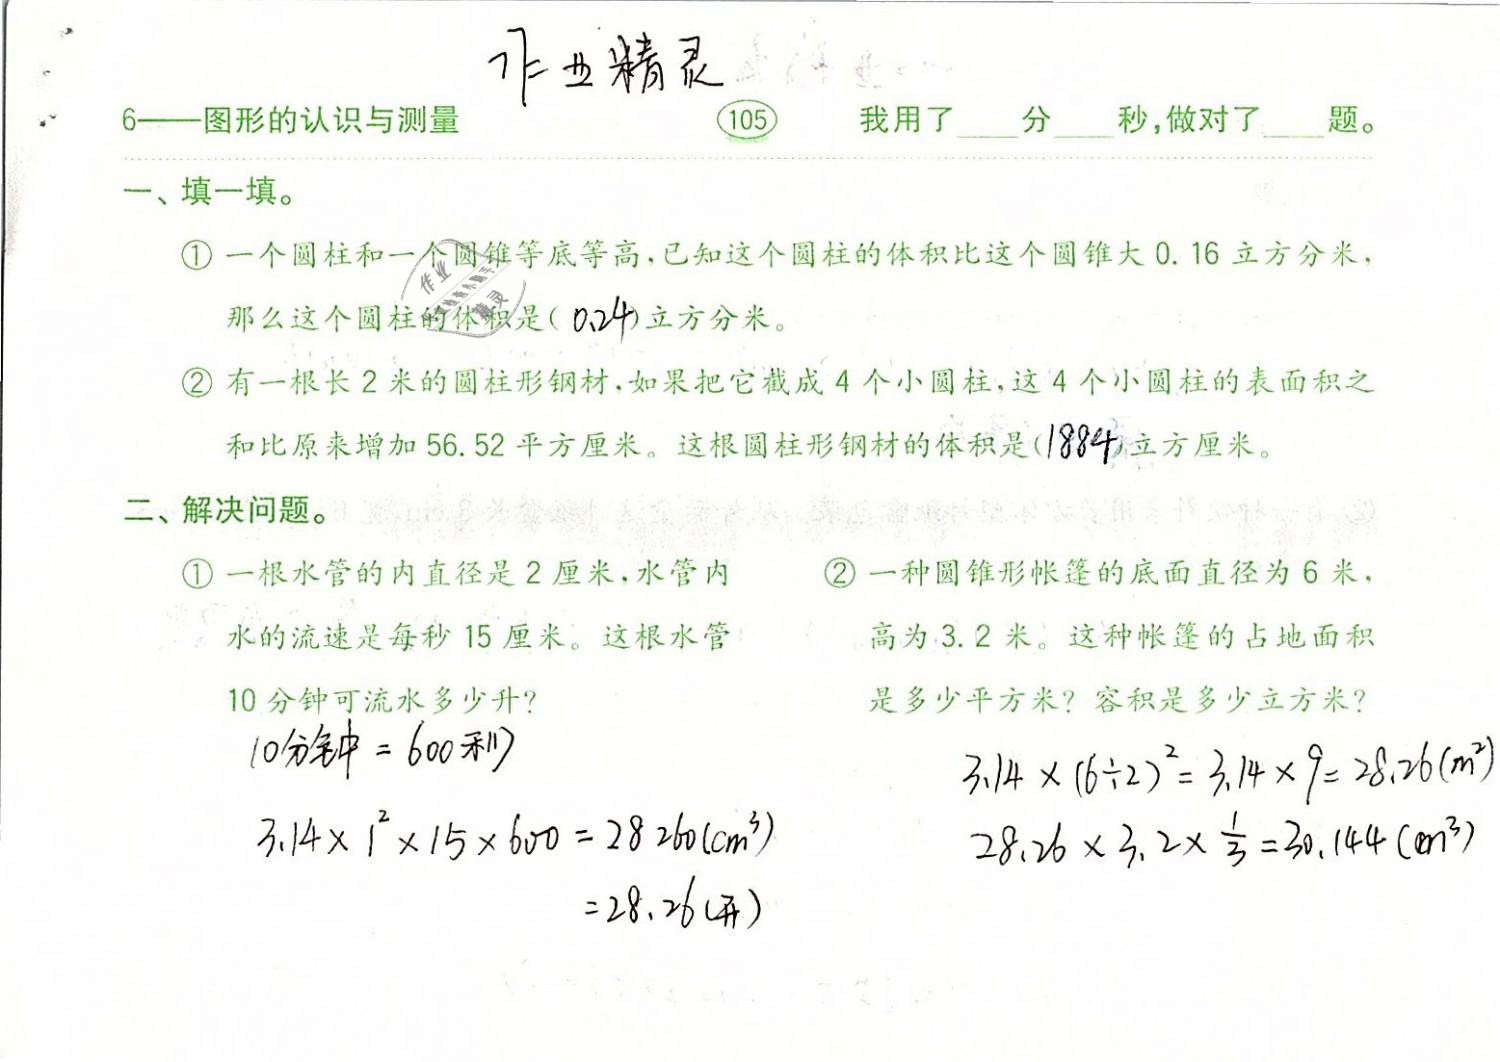 作业精灵
6——图形的认识与测量 105 我用了____分____秒,做对了____题。
一、填一填。
① 一个圆柱和一个圆锥等底等高,已知这个圆柱的体积比这个圆锥大 0.16 立方分米,
那么这个圆柱的体积是( 0.24 )立方分米。
② 有一根长 2 米的圆柱形钢材,如果把它截成 4 个小圆柱,这 4 个小圆柱的表面积之
和比原来增加 56.52 平方厘米。这根圆柱形钢材的体积是(1884)立方厘米。
二、解决问题。
① 一根水管的内直径是 2 厘米,水管内
水的流速是每秒 15 厘米。这根水管
10 分钟可流水多少升?
10分钟=600秒
3.14×1²×15×600=28260(cm³)
=28.26(升)
② 一种圆锥形帐篷的底面直径为 6 米,
高为 3.2 米。这种帐篷的占地面积
是多少平方米? 容积是多少立方米?
3.14×(6÷2)²=3.14×9=28.26(m²)
28.26×3.2×1/3=30.144(m³)